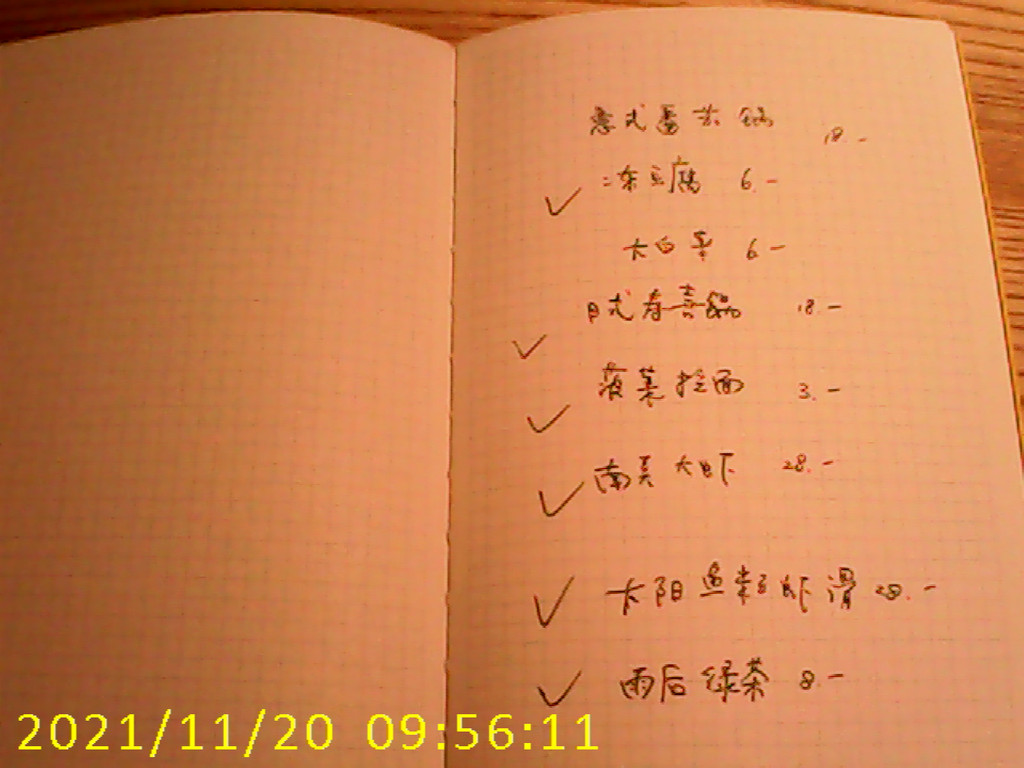 意式番茄锅 18.-
✓ 冻豆腐 6.-
大白菜 6-
日式寿喜锅 18.-
✓ 菠菜拉面 3.-
✓ 南美大虾 28.-
✓ 太阳鱼籽虾滑 28.-
✓ 雨后绿茶 8.-
2021/11/20 09:56:11